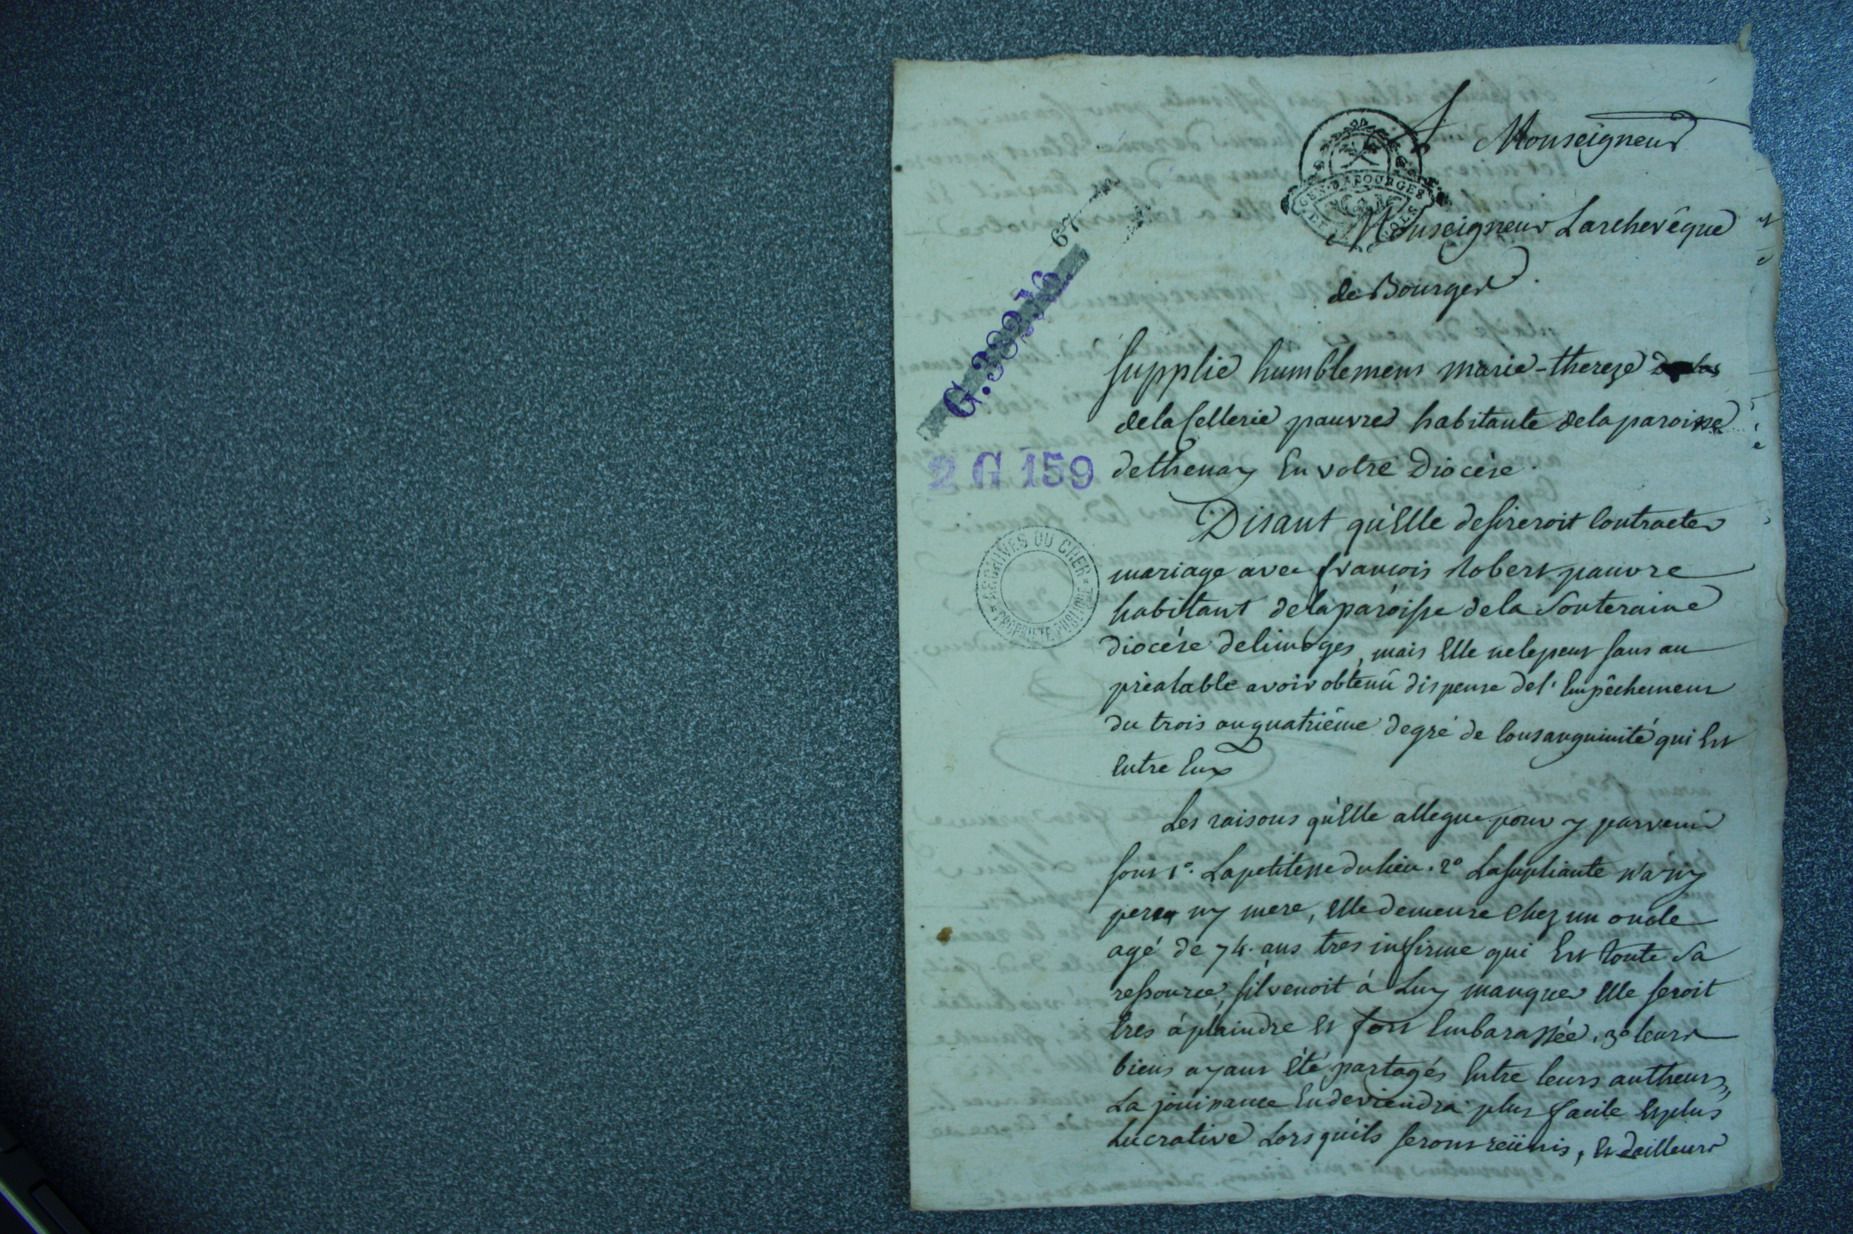 A Monseigneur
GEN. DE BOURGES
Monseigneur Larchevêque
de Bourges
67
G. 33276
2 G 159
ARCHIVES DU CHER
PROPRIÉTÉ PUBLIQUE
Supplie humblement marie-thereze
de la Cellerie pauvre habitante de la paroisse
de thenay En votre Diocése.
Disant qu'Elle desireroit Contracter
mariage avec françois Robert pauvre
habitant de la paroisse de la Souteraine
diocése de limoges, mais Elle ne le peut sans au
préalable avoir obtenû dispense de l'Empêchement
du trois au quatriéme degré de Consanguinité qui Est
Entre Eux
Les raisons qu'Elle allegue pour y parvenir
sont 1°. La petitesse du lieu. 2° La supliante n'a ny
pere ny mere, Elle demeure Chez un oncle
agé de 74. ans tres infirme qui Est toute sa
ressource, s'il venoit à Luy manquer Elle seroit
tres à plaindre Et fort Embarassée. 3° leurs
biens ayant Été partagés Entre leurs autheurs,
La jouissance En deviendra plus facile Et plus
lucrative Lorsqu'ils seront reünis, Et dailleurs